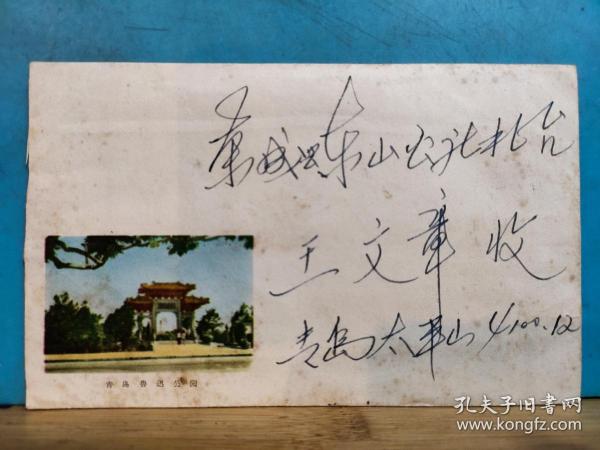 荣成县东山公社北台
王文章 收
青岛太平山4100.12
青岛鲁迅公园
孔夫子旧书网
www.kongfz.com